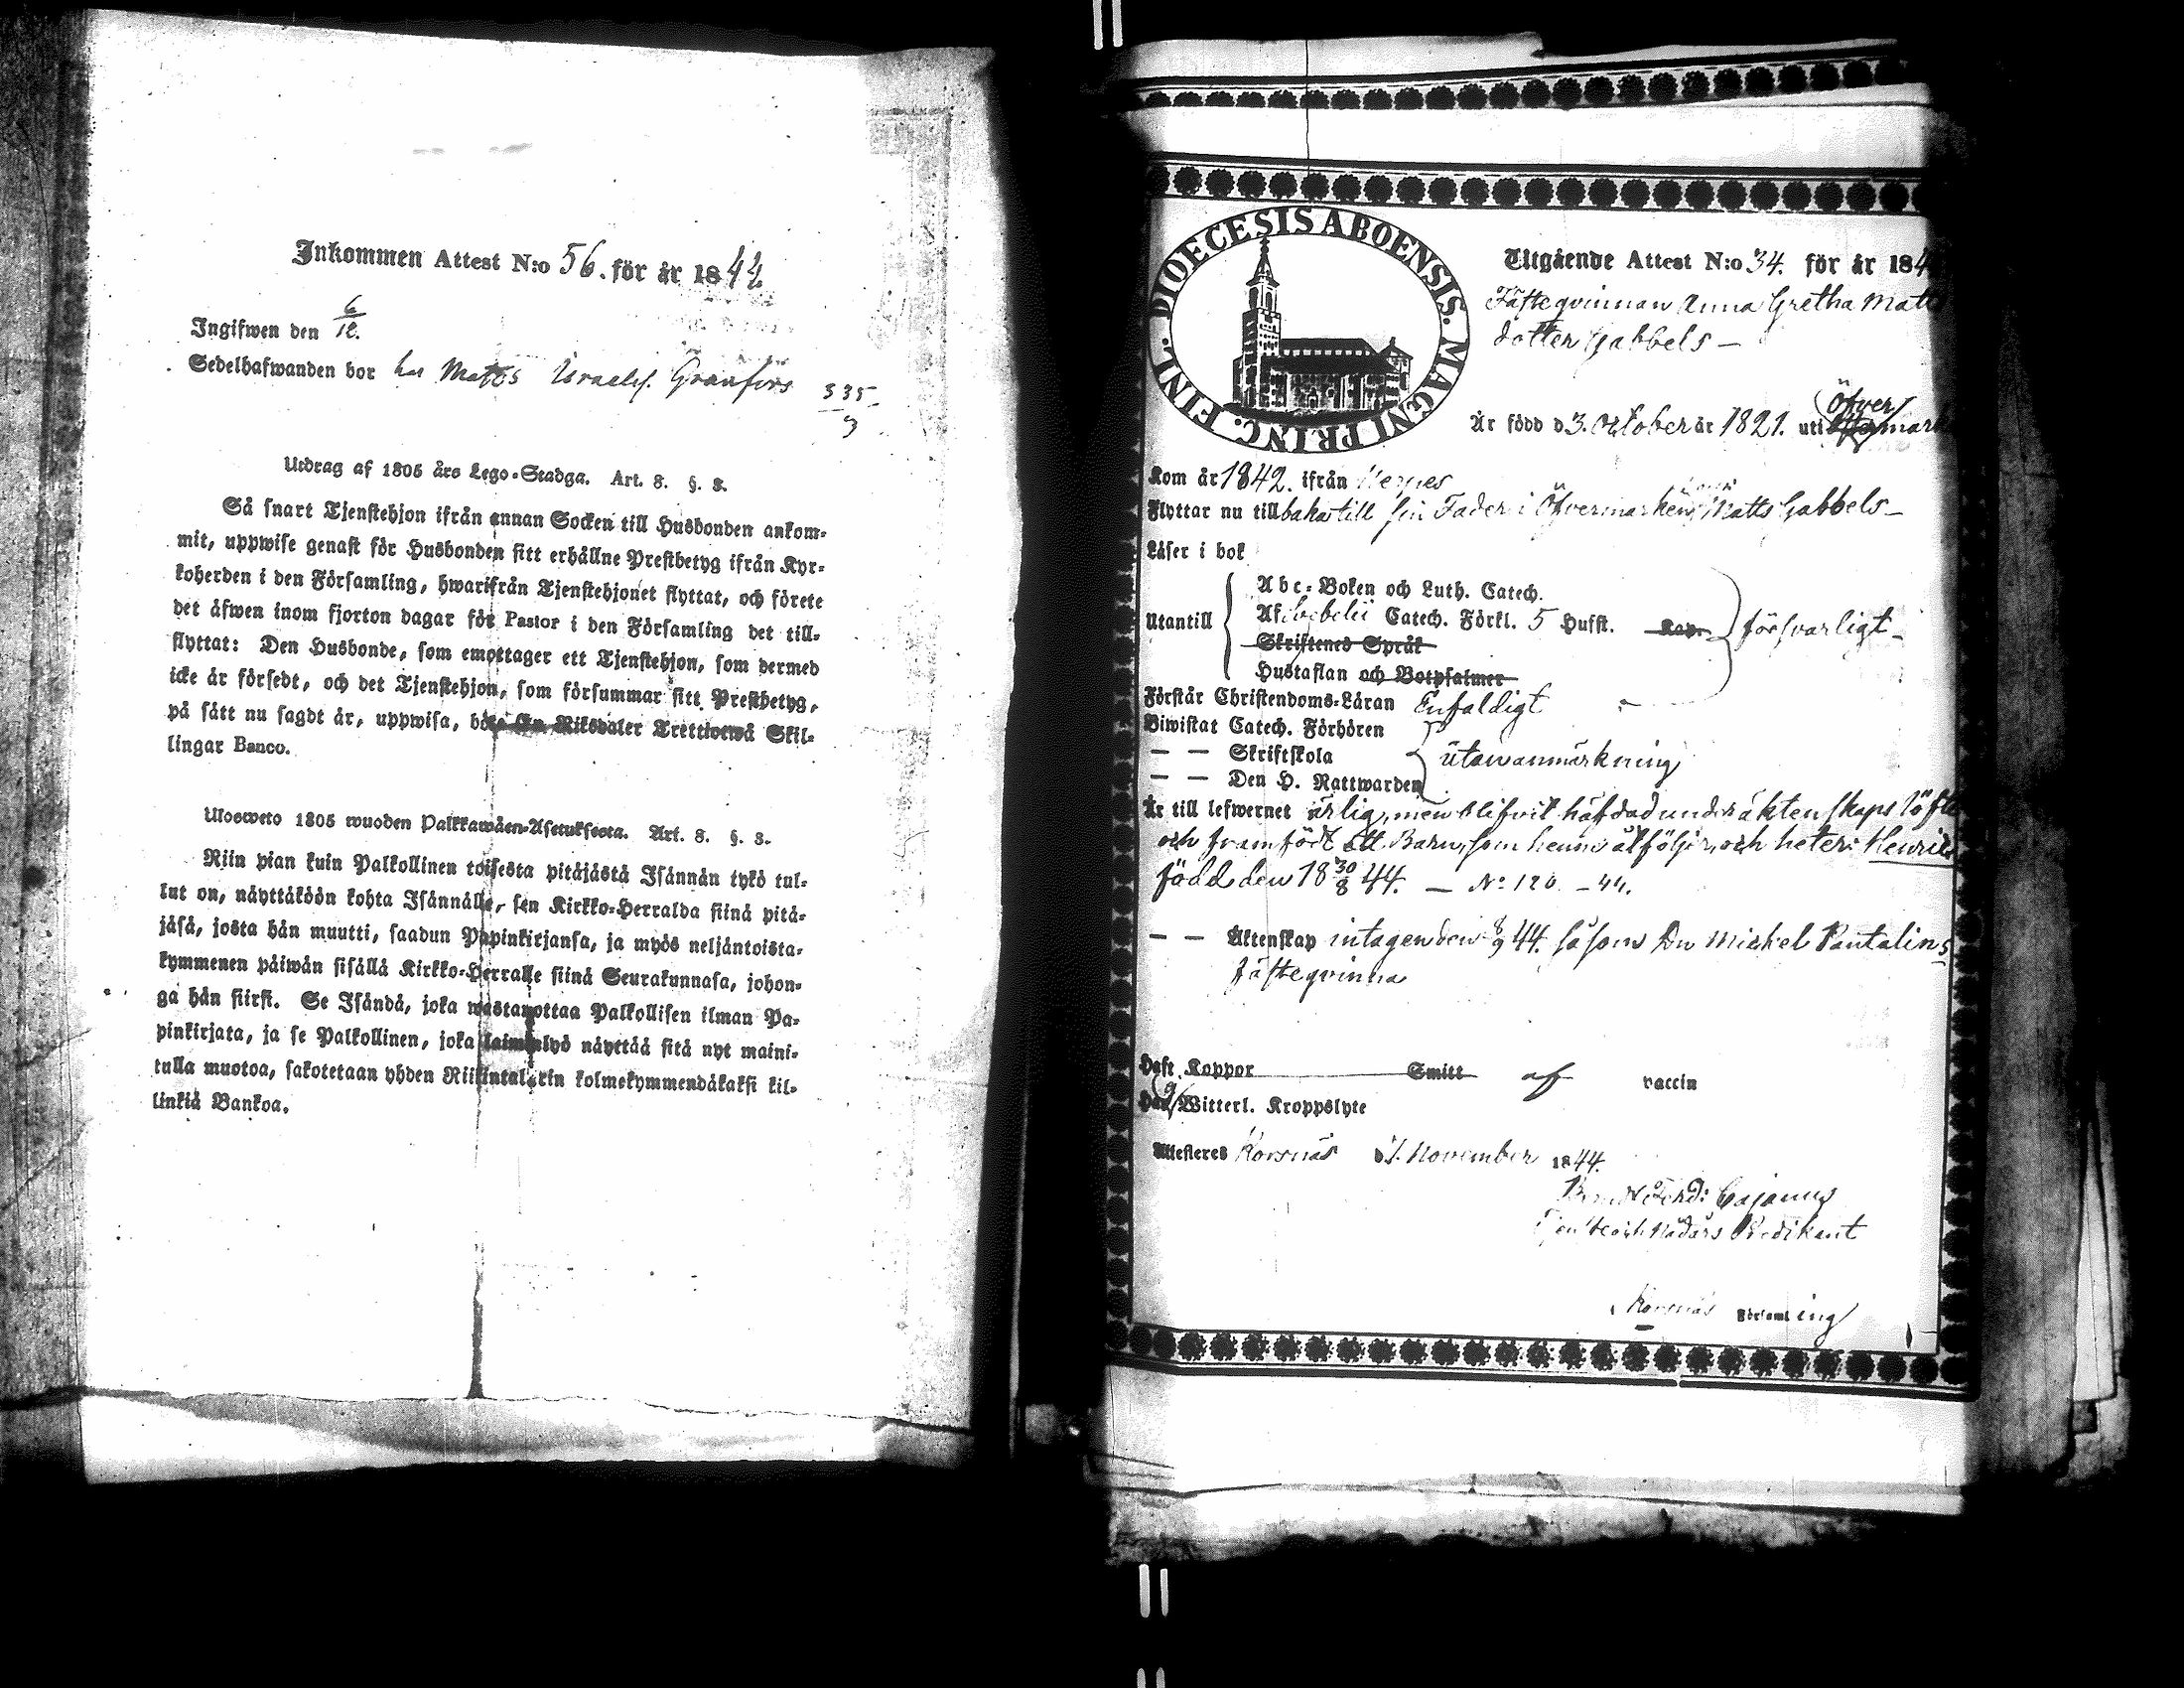 Inkommen Attest N:o 56. för år 1844
Ingifwen den 6/12.
Sedelhafwanden bor hos Matts Israels. Granfors 335
9
Utdrag af 1805 års Lego-Stadga. Art. 8. §. 8.
Så snart Tjenstehjon ifrån annan Socken till Husbonden ankom-
mit, uppwise genast för Husbonden sitt erhållne Prestbetyg ifrån Kyr-
koherden i den Församling, hwarifrån Tjenstehjonet flyttat, och förete
det äfwen inom fjorton dagar för Pastor i den Församling det till-
flyttat: Den Husbonde, som emottager ett Tjenstehjon, som dermed
icke är försedt, och det Tjenstehjon, som försummar sitt Prestbetyg,
på sätt nu sagdt är, uppwisa, böte En Riksdaler Trettiotwå Skil-
lingar Banco.
Ulosweto 1805 wuoden Palkkawäen-Asetuksesta. Art. 8. §. 8.
Niin pian kuin Palkollinen toisesta pitäjästä Isännän tykö tul-
lut on, näyttäköön kohta Isännälle, sen Kirkko-Herralda siinä pitä-
jäsä, josta hän muutti, saadun Papinkirjansa, ja myös neljäntoista-
kymmenen päiwän sisällä Kirkko-Herralle siinä Seurakunnasa, johon-
ga hän siirsi. Se Isändä, joka wastanottaa Palkollisen ilman Pa-
pinkirjata, ja se Palkollinen, joka laiminlyö näyttää sitä nyt maini-
tulla muotoa, sakotetaan yhden Riikintalarin kolmekymmendäkaksi kil-
linkiä Bankoa.
DIOECESIS ABOENSIS. MAGNI PRINC. FINL.
Utgående Attest N:o 34. för år 184
Fästeqvinnan Anna Gretha Matts
dotter Gabbels —
Är född d 3. October år 1821. uti Öfvermark
Kom år 1842. ifrån Nerpes
Flyttar nu tillbaka till sin Fader i Öfvermarken Matts Gabbels —
Läser i bok
Utantill
Abc-Boken och Luth. Catech.
Af Svebelii Catech. Förkl. 5 Hufst. Kap. försvarligt
Skriftenes Språk
Hustaflan och Botpsalmer
Förstår Christendoms-Läran Enfaldigt
Biwistat Catech. Förhören
— — Skriftskola utan anmärkning
— — Den H. Nattwarden
Är till lefwernet ärlig, men blifvit häfdad under äktenskaps löfte
och framfödt ett Barn, som henne åtföljer, och heter: Henrik
född den 18 30/8 44. — No: 120. — 44.
— — Äktenskap intagen den 8/9 44. såsom Dr Mickel Pantalins
fästeqvinna
Haft Koppor Smitt af vaccin
Witterl. Kroppslyte
Attesteras Korsnäs d 1. November 1844.
Ferd: Cajanus
Predikant
Korsnäs Församling